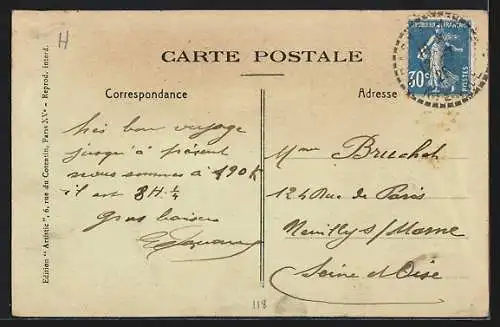 H
CARTE POSTALE
Correspondance
Adresse
très bon voyage
jusqu'à présent
nous sommes à 190 K
il est 8 H. 1/4
gros baisers
Mme Bruchot
124 Rue de Paris
Neuilly s/ Marne
Seine et Oise
118
Edition "Artistic", 6, rue du Cotentin, Paris XVe - Reprod. interd.
30c
POSTES